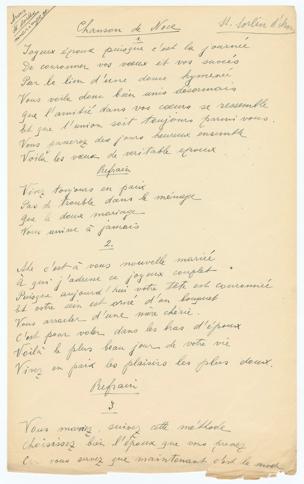 Chanson de Noce
St. Sorlin d'Arves
1
Joyeux époux puisque c'est la journée
De couronner vos vœux et vos succès
Par le lien d'une douce hymenée
Vous voilà donc bien unis desormais
Que l'amitié dans vos cœurs se ressemble
Et que l'union soit toujours parmi vous.
Vous passerez des jours heureux ensemble
Voilà les vœux de veritable epoux
Refrain
Vivez toujours en paix
Pas de trouble dans le ménage
Que le doux mariage
Vous unisse à jamais
2.
c'est à vous nouvelle mariée
A qui j'adresse ce joyeux couplet
Puisque aujourd'hui votre tête est couronnée
Et votre sein est orné d'un bouquet
Vous arracher d'une mère chérie
C'est pour voler dans les bras d'époux
Voilà le plus beau jour de votre vie
Vivez en paix les plaisirs les plus doux.
Refrain
3
Vous suivez cette méthode
Choisissez bien l'époux que vous prenez
Car vous savez que maintenant c'est la mode